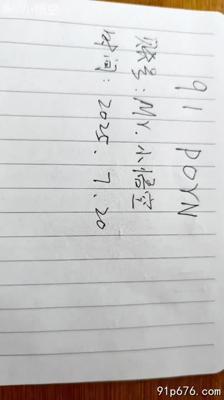 91 PORN
账号：MY.小悟空
时间：2025.7.20
91p676.com